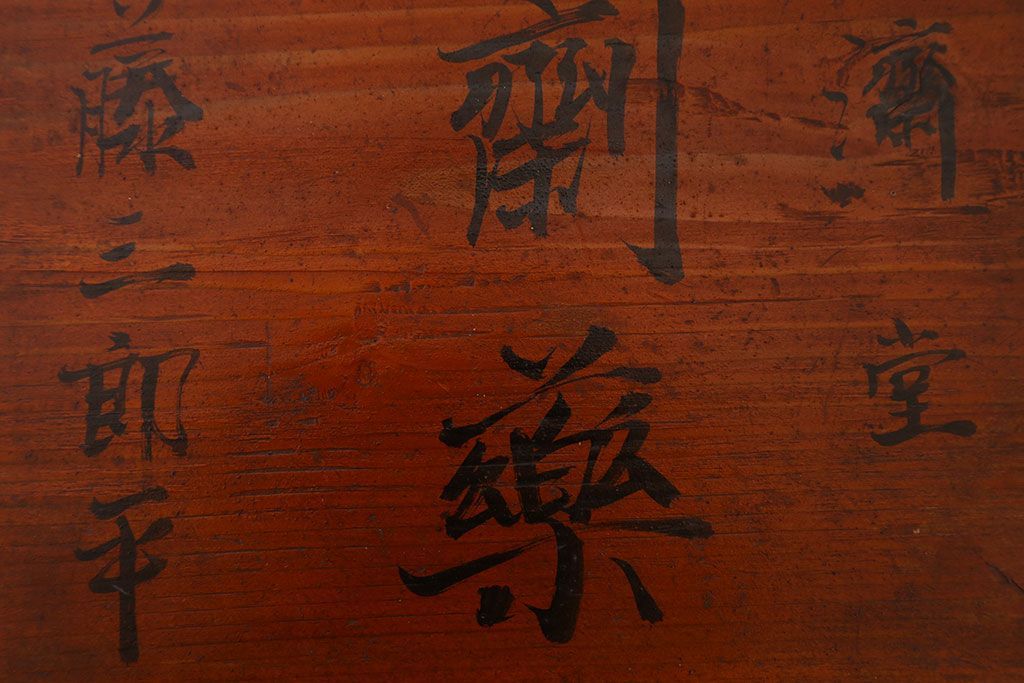 濟堂
劑藥
藤三郎平